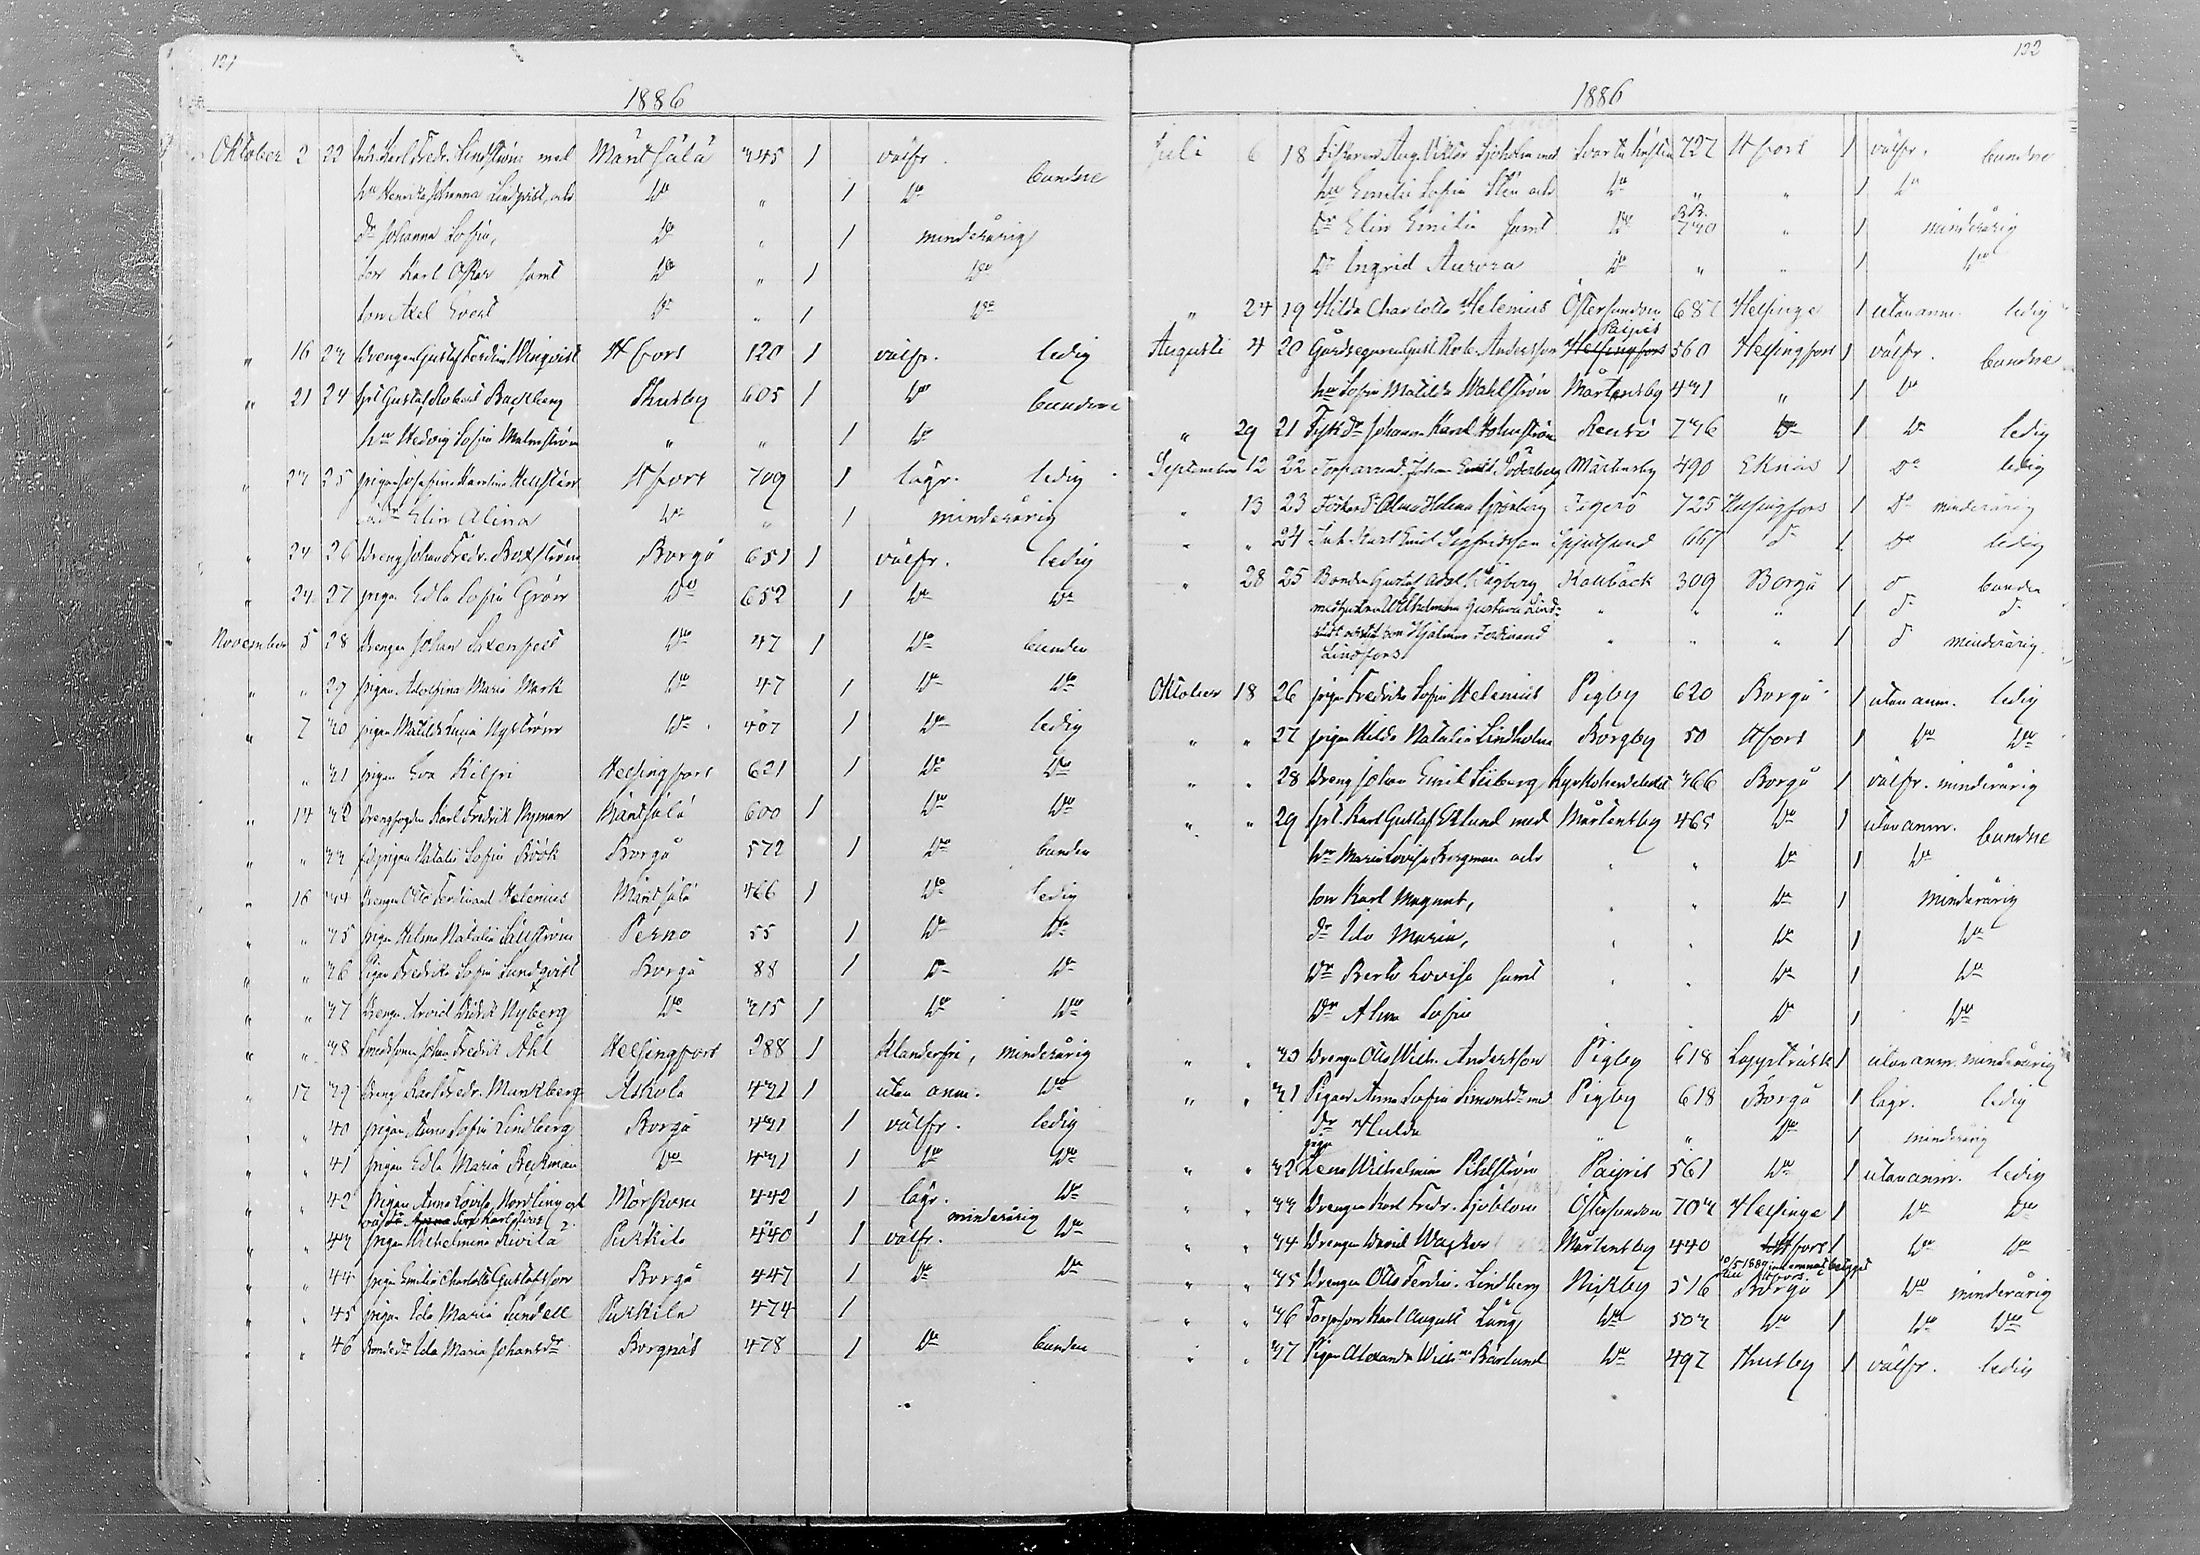 121
1886
Oktober 2 22 Inh. Karl Fredr. Lindström med Mäntsälä 345 1 välfr. bundne
hu Henrika Johanna Lindqvist, och Do " 1 Do
dr Johanna Sofia, Do " 1 minderårig
son Karl Oskar samt Do " 1 Do
son Axel Evert Do " 1 Do
" 16 23 Drengen Gustaf Ferdin. Winqvist Hfors 120 1 välfr. ledig
" 21 24 Gustaf Robert Buxberg Thusby 605 1 Do bundne
hu Hedvig Sofia Malmström " " 1 Do
" 23 25 pigan Josefina Karolina Hellsten Hfors 709 1 lägr. ledig
dr Elin Alina Do " 1 minderårig
" 24 26 Dreng Johan Fredr. Boxström Borgå 651 1 välfr. ledig
" 24 27 pigan Edla Sofia Grön Do 652 1 Do Do
November 5 28 Drengen Johan Saxenfelt Do 47 1 Do bunden
" " 29 pigan Adolfina Maria Mark Do 47 1 Do Do
" 7 30 pigan Matilda Nyström Do 407 1 Do ledig
" 31 pigan Eva Kilpi Helsingfors 621 1 Do Do
" 14 32 Drengfogden Karl Fredrik Nyman Mäntsälä 600 1 Do Do
" " 33 pigan Natalia Sofia Böök Borgå 572 1 Do bunden
" 16 34 Drengen Otto Ferdinand Helenius Mäntsälä 366 1 Do ledig
" " 35 pigan Helma Natalia Sällström Perno 55 1 Do Do
" " 36 Pigan Fredrika Sofia Sundqvist Borgå 88 1 Do Do
" " 37 Drengen Arvid Nyberg Do 315 1 Do Do
" " 38 Smedsonen Johan Fredrik Ahl Helsingfors 288 1 klanderfri, minderårig
" 17 39 Dreng Karl Fredr. Munkberg Askola 431 1 utan anm. Do
" " 40 pigan Anna Sofia Lindberg Borgå 431 1 välfr. ledig
" " 41 pigan Edla Maria Beckman Do 431 1 Do Do
" " 42 Pigan Anna Lovisa Nordling och Mörskom 442 1 lägr. Do
1 minderårig
" " 43 pigan Wilhelmina Kivilä Pukkila 440 1 välfr. Do
" " 44 pigan Emilia Charlotta Gustafsson Borgå 447 1 Do Do
" " 45 pigan Ida Maria Sundell Pukkila 474 1
" " 46 Bondedr Ida Maria Johansdr Borgnäs 478 1 Do bunden
122
1886
Juli 6 18 Fiskaren Aug. Viktor Sjöholm med 727 Hfors 1 välfr. bundne
hu Emilia Sofia Sten och Do " " 1 Do
dr Elin Emilia samt Do B.B. 730 " 1 minderårig
Dr Ingrid Aurora Do " " 1 Do
" 24 19 Hilda Charlotta Helenius Östersundom 687 Helsinge 1 utan anm. ledig
Paipis
Augusti 4 20 Gårdsegaren Gust. Rob. Andersson Helsingfors 560 Helsingfors 1 välfr. bundne
hu Sofia Matilda Wahlström Mårtensby 431 " 1 Do
" 29 21 Johanna Karol. Holmström 736 Do 1 Do ledig
September 12 22 Johan Söderberg Mårtensby 490 Eknäs 1 Do ledig
" 13 23 Alma Helena Grönberg Tigerö 725 Helsingfors 1 Do minderårig
" " 24 Inh. Karl Emil Segfridsson Spjutsund 667 Do 1 Do ledig
" 28 25 Bonden Gustaf Adolf Vägberg Kallbäck 309 Borgå 1 Do bunden
med hustrun Wilhelmina Gustava " " " 1 Do Do
son Hjalmar Ferdinand " " " 1 Do minderårig
Lindfors
Oktober 18 26 pigan Fredrika Sofia Helenius Pigby 620 Borgå 1 utan anm. ledig
" " 27 pigan Hilda Natalia Lindholm Borgby 50 Hfors 1 Do Do
" " 28 Dreng Johan Emil Siiberg 366 Borgå 1 välfr. minderårig
" " 29 Karl Gustaf Eklund med Mårtensby 465 Do 1 utan anm. bundne
hu Maria Lovisa Bergman och " " Do 1 Do
son Karl Magnus, " " Do 1 minderårig
dr Ida Maria, " " Do 1 Do
Dr Berta Lovisa samt " " Do 1 Do
Dr Alma Sofia " " Do 1 Do
" " 30 Drengen Otto Wilh. Andersson Pigby 618 Lappträsk 1 utan anm. minderårig
" " 31 Pigan Anna Sofia Simonsdr med Pigby 618 Borgå 1 lägr. ledig
dr Hulda " " Do 1 minderårig
pigan
" " 32 Lena Wilhelmina Pihlström Paipis 561 Do 1 utan anm. ledig
" " 33 Drengen Karl Fredr. Sjöblom Östersundom 703 Helsinge 1 Do Do
" " 34 Drengen David Wasker Mårtensby 440 Hfors 1 Do Do
" " 35 Drengen Otto Ferdin. Lindberg Nikkby 516 Borgå 1 Do minderårig
" " 36 Torpson Karl August Lång Do 503 Do 1 Do Do
" " 37 Pigan Alexandra Wilh:na Bärlund Do 497 Thusby 1 välfr. ledig